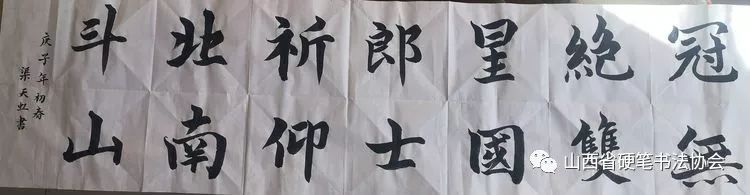 冠絶星郎祈北斗
無雙國士仰南山
庚子年初春
渠天虹書
山西省硬笔书法协会